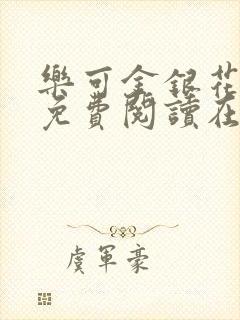 樂可金銀花
免費閱讀在
虞軍豪